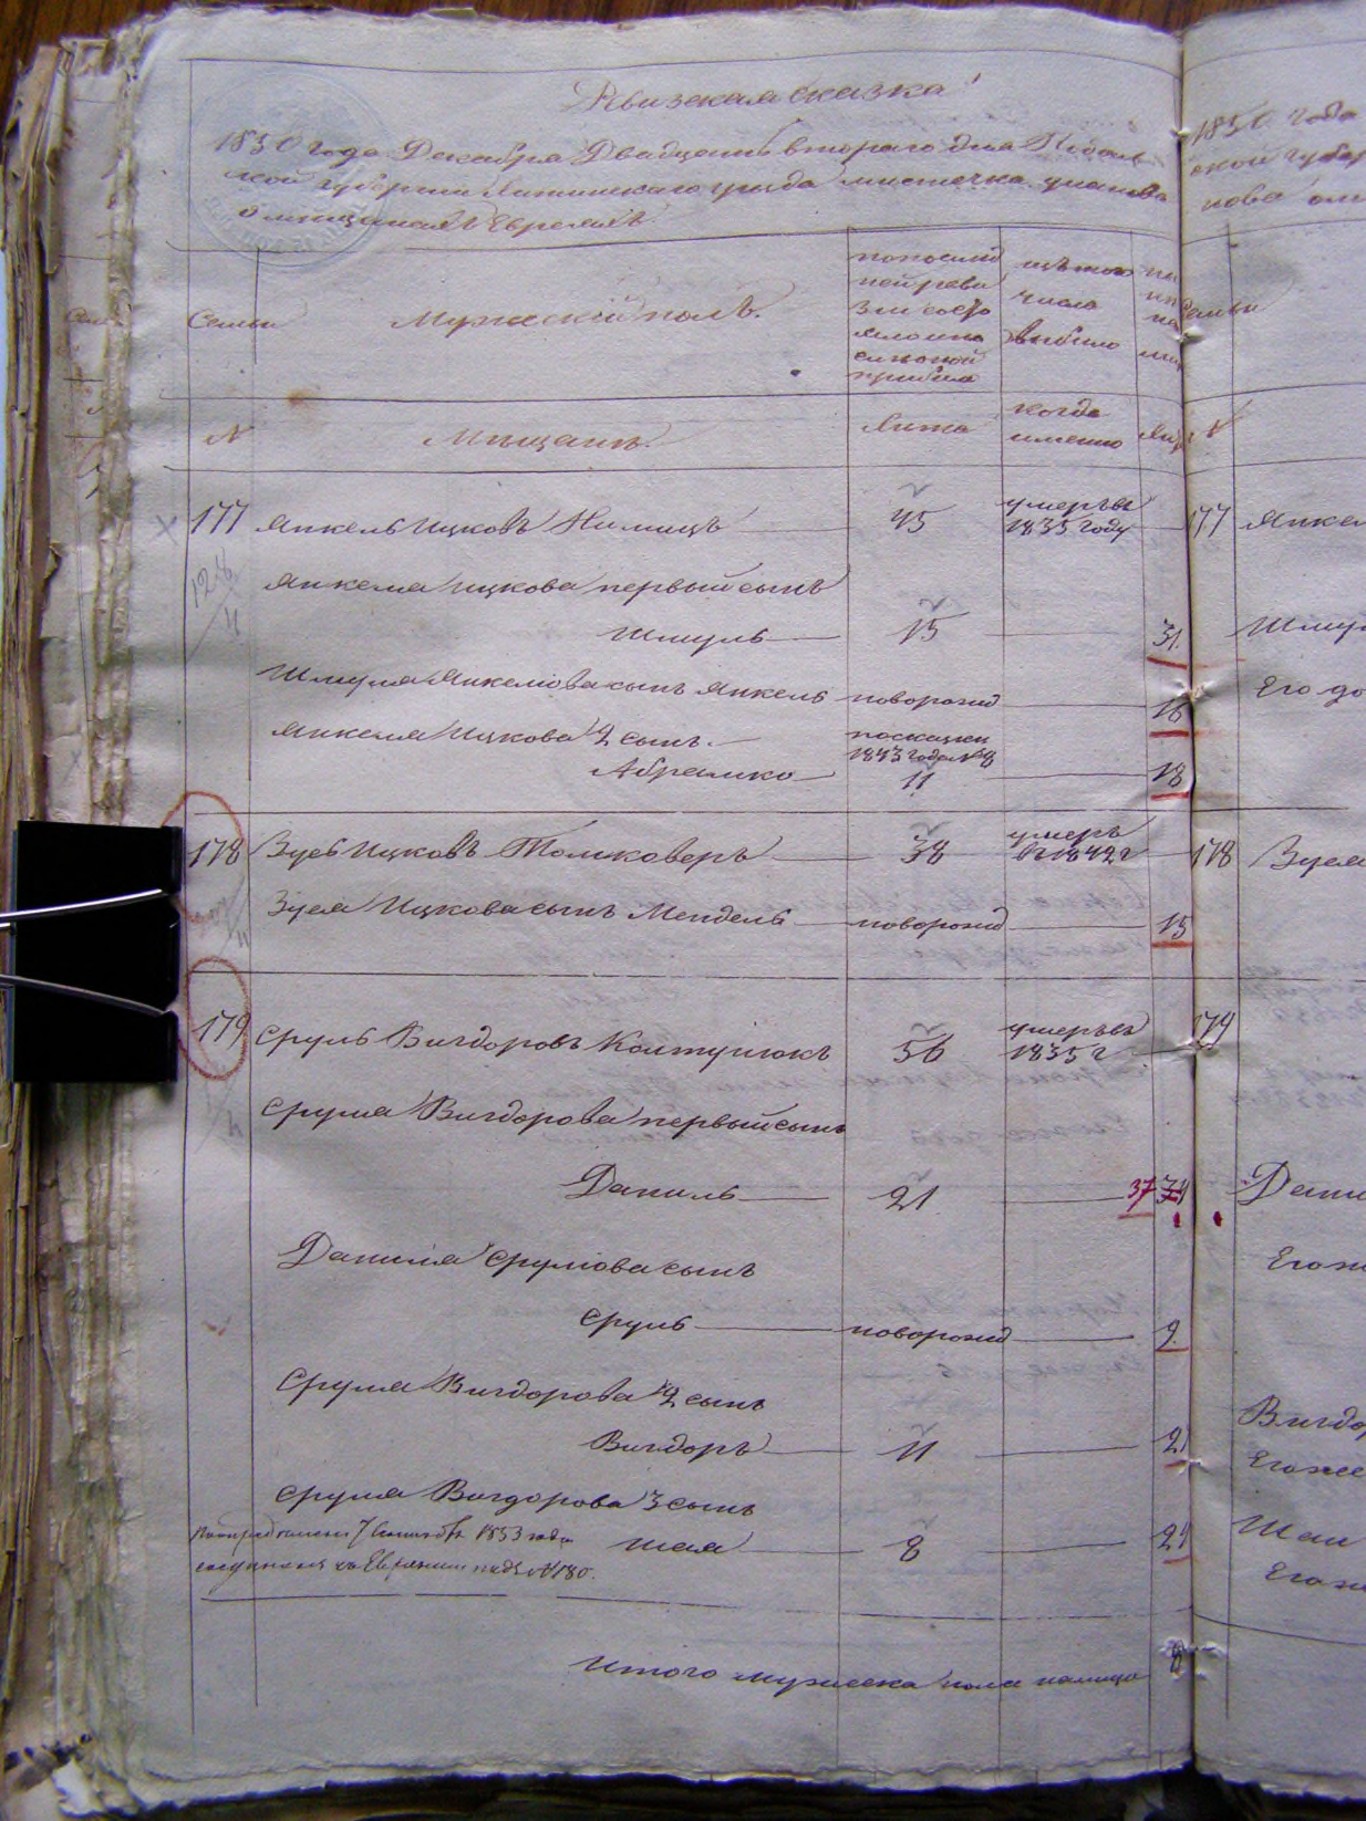 Ревизская сказка
1850 года Декабря Двадцать втораго дня Подоль
ской губернии Литинскаго уезда местечка Уланова
о мещанахъ Евреяхъ
Семьи
Мужеской полъ.
по послед
ней реви
зіи состо
яло и по
оной
прибыло
изъ того
числа
выбыло
№
Мещанъ.
Лета
когда
именно
177 Янкель Ицковъ Нимиць 45 умеръ въ 1835 году
Янкеля Ицкова первый сынъ
Шмуль 15 31.
Шмуля Янкелюва сынъ Янкель новорожд 16
Янкеля Ицкова 2 сынъ.
по сказке 1843 года № 8
Абрамко 11 18
178 Зусь Ицковъ Толиковеръ 38 умеръ въ 1842 г
Зуся Ицкова сынъ Мендель новорожд 15
179 Сруль Вигдоровъ Колтунюкъ 56 умеръ въ 1835 г
Сруля Вигдорова первый сынъ
Даниль 21 37
Даниля Срулюва сынъ
Сруль новорожд 2.
Сруля Вигдорова 2 сынъ
Вигдоръ 11 21
Сруля Вигдорова 3 сынъ
Шая 8 24
1853 года
под № 180.
Итого мужеска пола налицо 8
1850 года
ской губер
нова
Семьи
№
177 Янкел
Шмул
Его до
178 Зуся
179
Дани
Его ж
Вигдо
Его же
Шаи
Его ж